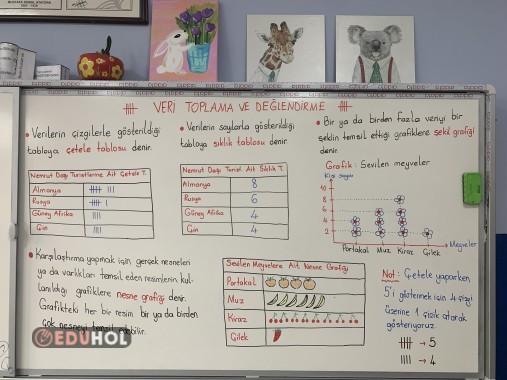 VERİ TOPLAMA VE DEĞERLENDİRME
• Verilerin çizgilerle gösterildiği
tabloya çetele tablosu denir.
Nemrut Dağı Turistlerine Ait Çetele T.
Almanya
Rusya
Güney Afrika
Çin
• Verilerin sayılarla gösterildiği
tabloya sıklık tablosu denir.
Nemrut Dağı Turist. Ait Sıklık T.
Almanya 8
Rusya 6
Güney Afrika 4
Çin 4
• Bir ya da birden fazla veriyi bir
şeklin temsil ettiği grafiklere şekil grafiği
denir.
Grafik: Sevilen meyveler
Kişi sayısı
10
8
6
4
2
Portakal Muz Kiraz Çilek
Meyveler
• Karşılaştırma yapmak için gerçek nesneleri
ya da varlıkları temsil eden resimlerin kul-
lanıldığı grafiklere nesne grafiği denir.
Grafikteki her bir resim bir ya da birden
çok nesneyi temsil edebilir.
Sevilen Meyvelere Ait Nesne Grafiği
Portakal
Muz
Kiraz
Çilek
Not: Çetele yaparken
5'i göstermek için 4 çizgi
üzerine 1 çizik atarak
gösteriyoruz.
→ 5
→ 4
EDUHOL